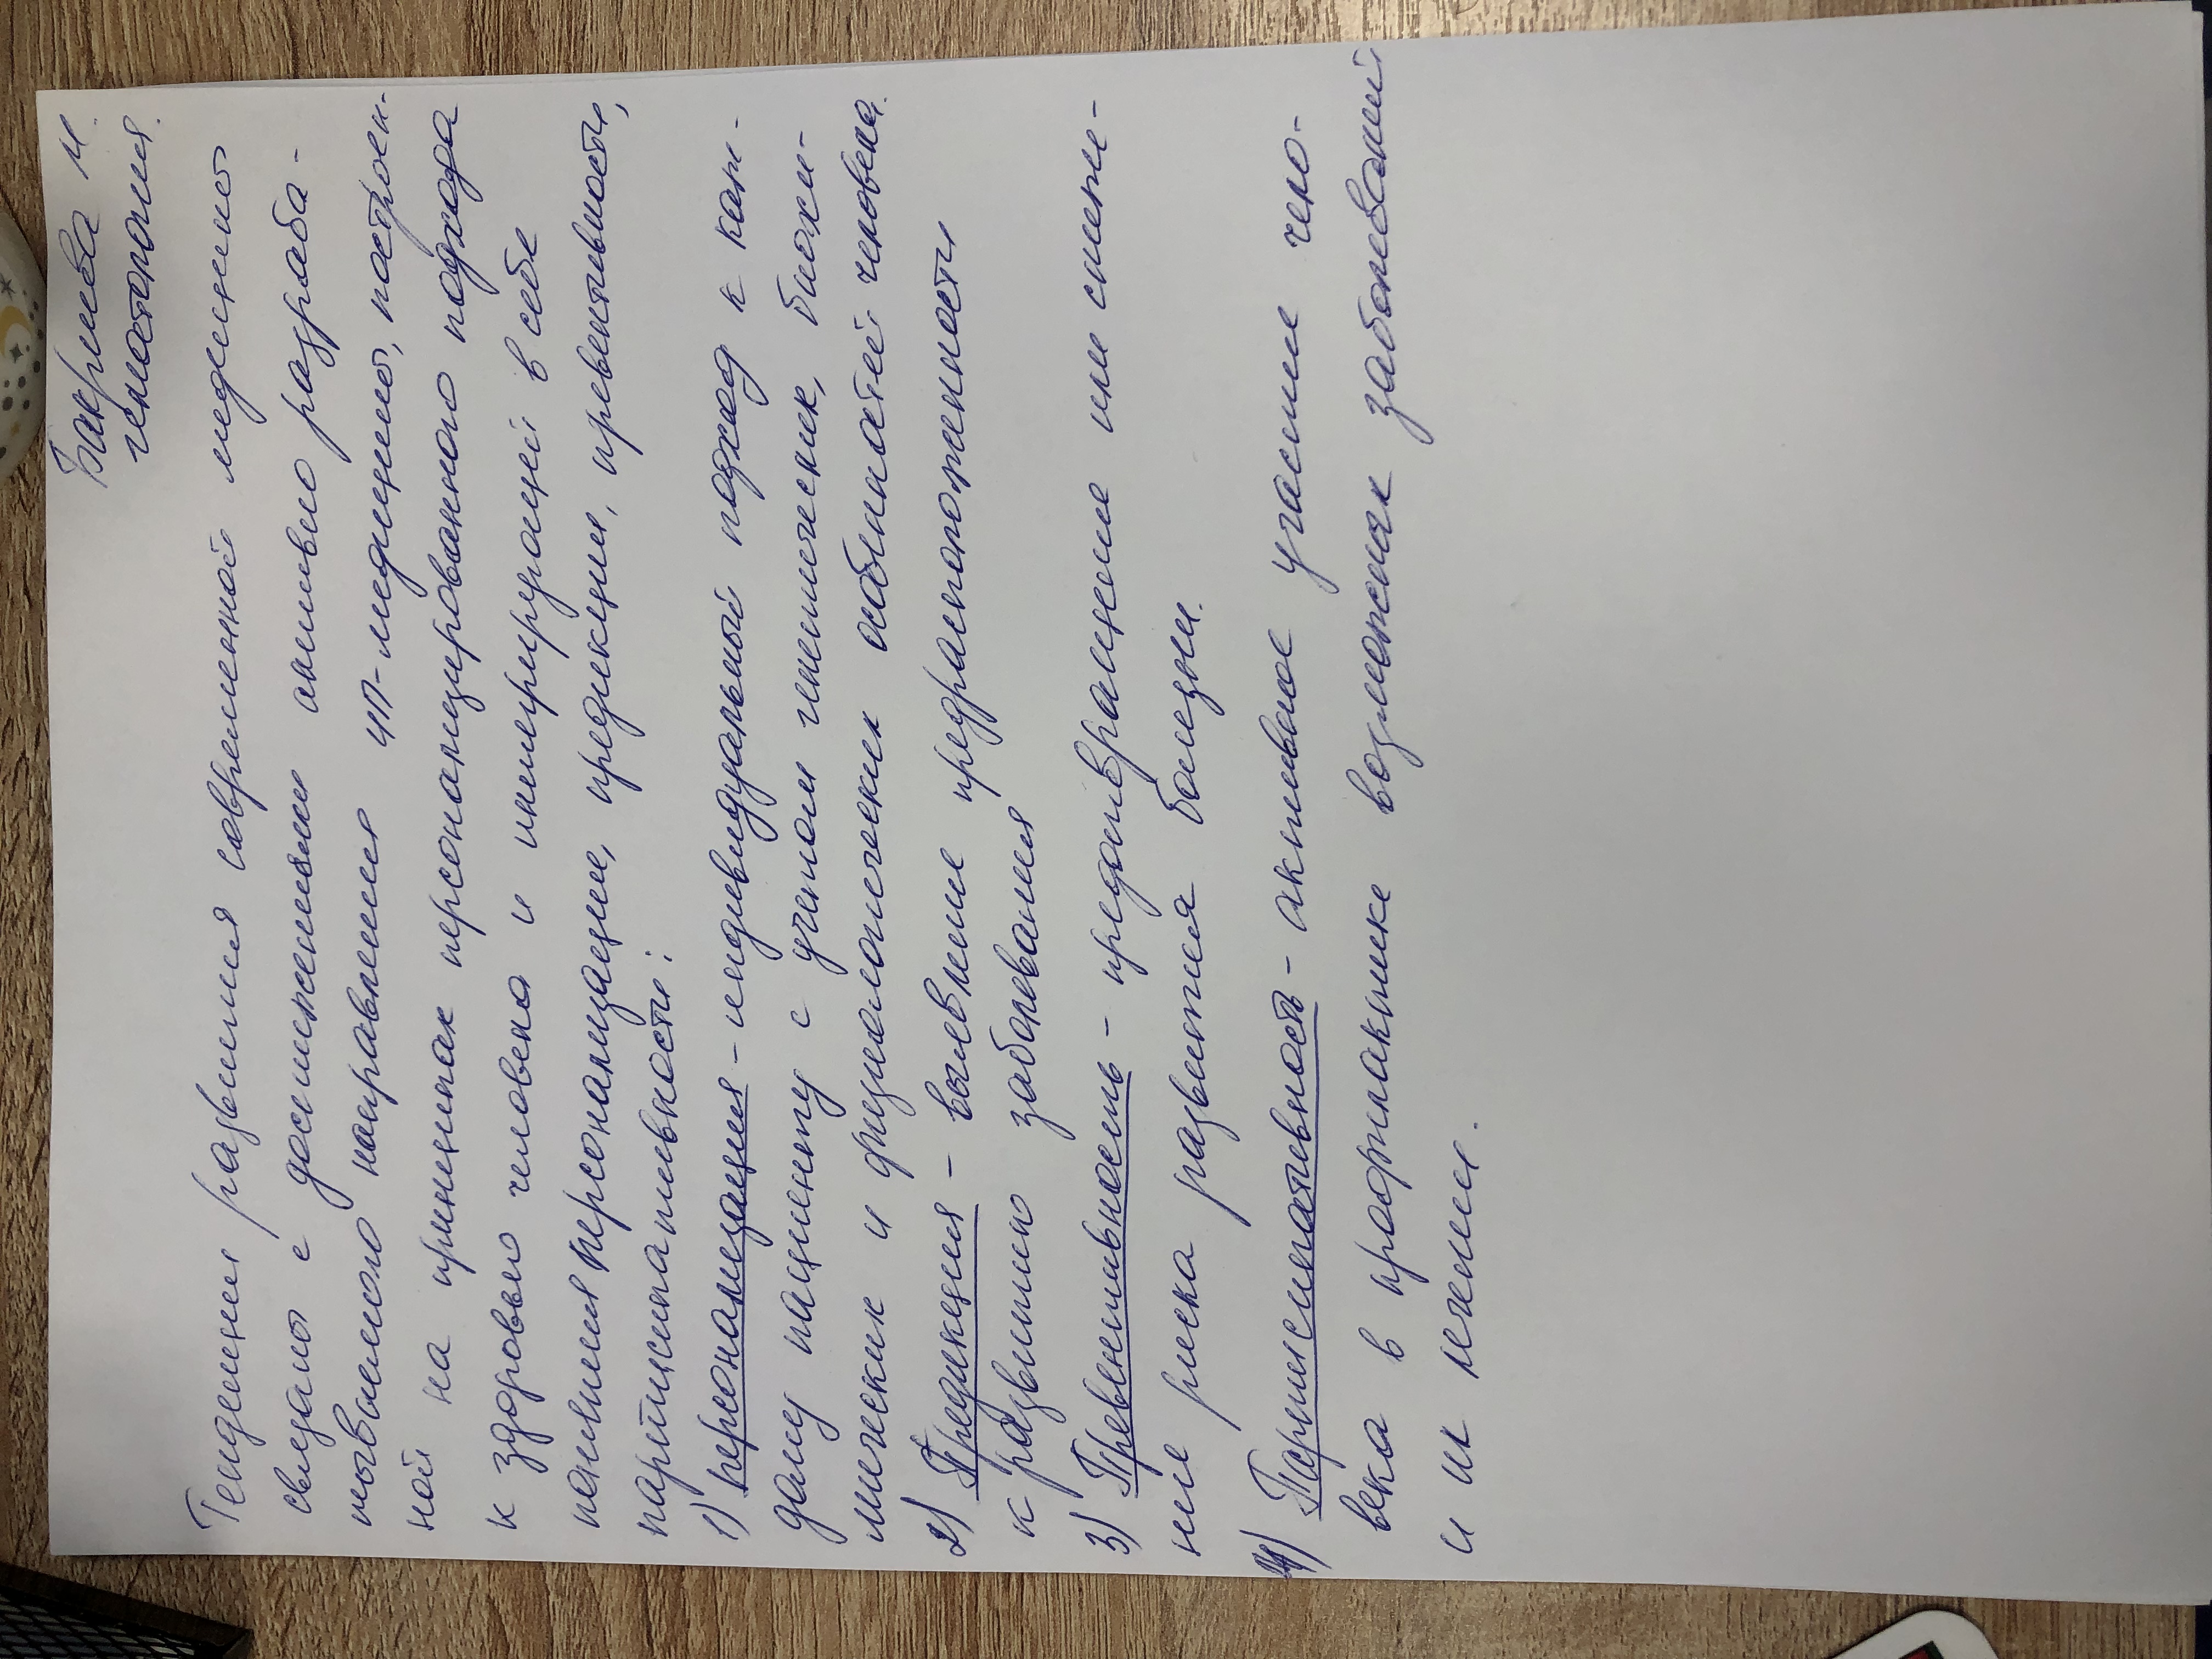 Бакриева М.
гематология.
Тенденция развития современной медицины
связаны с достижениями активно разраба-
тываемого направления 4П-медицины, построен-
ной на принципах персонализированного подхода
к здоровью человека и интегрирующей в себе
понятия персонализации, предикции, превентивности,
партисипативности:
1) персонализация - индивидуальный подход к каж-
дому пациенту с учетом генетических, биохи-
мических и физиологических особенностей человека.
2) Предикция - выявление предрасположенности
к развитию заболевания
3) Превентивность - предотвращение или сниже-
ние риска развития болезни.
4) Партисипативность - активное участие чело-
века в профилактике возможных заболеваний
и их лечении.